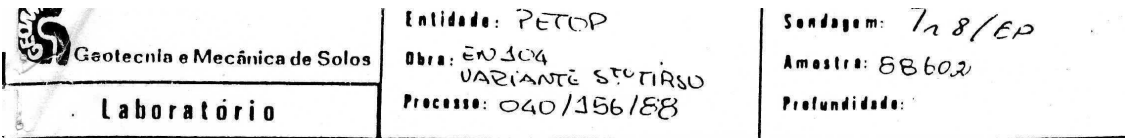 Geotecnia e Mecânica de Solos
Laboratório
Entidade: PETOP
Obra: EN 104
VARIANTE STO TIRSO
Processo: 040/156/88
Sondagem: Tr 8/EP
Amostra: 88602
Profundidade: